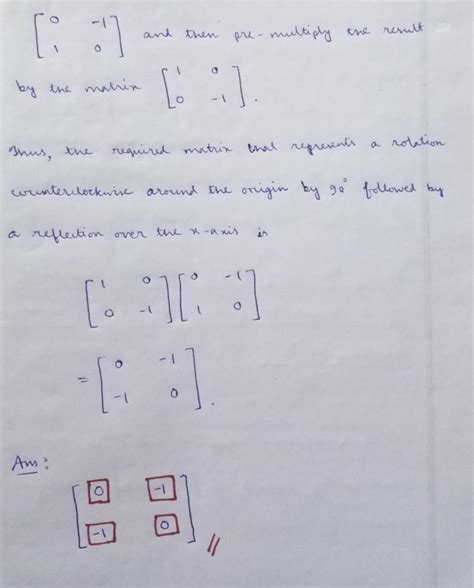 [0 -1
1 0] and then pre-multiply the result
by the matrix [1 0
0 -1].
Thus, the required matrix that represents a rotation
counterclockwise around the origin by 90° followed by
a reflection over the x-axis is
[1 0
0 -1] [0 -1
1 0]
= [0 -1
-1 0].
Ans:
[0 -1
-1 0] //